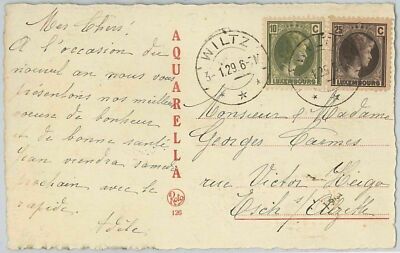 Mes Chers!
A l'occasion du
nouvel an nous vous
présentons nos meilleurs
voeux de bonheur
et de bonne santé.
Jean viendra samedi
prochain avec le
rapide.
Adèle
AQUARELLA
126
WILTZ
3-1.29.6-
10 C
LUXEMBOURG
25 C
LUXEMBOURG
Monsieur & Madame
Georges
rue Victor Hugo
Esch s/Alzette